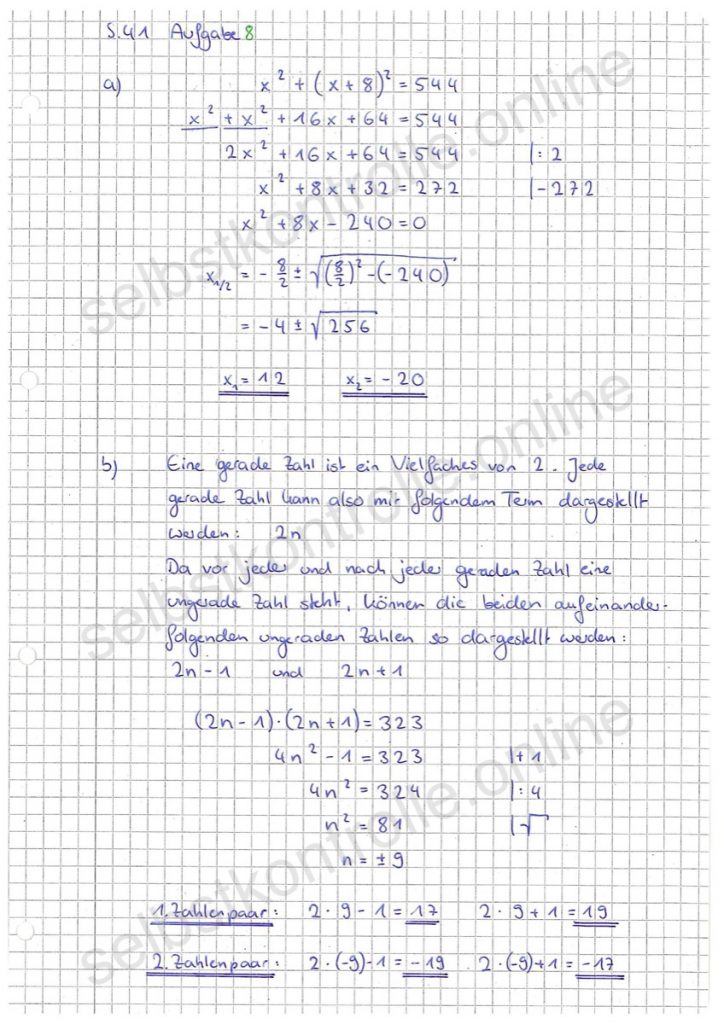 S.41 Aufgabe 8
a) x² + (x+8)² = 544
x² + x² + 16x + 64 = 544
2x² + 16x + 64 = 544 |: 2
x² + 8x + 32 = 272 |-272
x² + 8x - 240 = 0
x₁/₂ = - 8/2 ± √((8/2)² - (-240))
= -4 ± √256
x₁ = 12 x₂ = -20
b) Eine gerade Zahl ist ein Vielfaches von 2. Jede
gerade Zahl kann also mir folgendem Term dargestellt
werden: 2n
Da vor jeder und nach jeder geraden Zahl eine
ungerade Zahl steht, können die beiden aufeinander-
folgenden ungeraden Zahlen so dargestellt werden:
2n-1 und 2n+1
(2n-1)·(2n+1) = 323
4n² - 1 = 323 |+1
4n² = 324 |:4
n² = 81 |√
n = ±9
1. Zahlenpaar: 2·9-1 = 17 2·9+1 = 19
2. Zahlenpaar: 2·(-9)-1 = -19 2·(-9)+1 = -17
selbstkontrolle.online
selbstkontrolle.online
selbstkontrolle.online